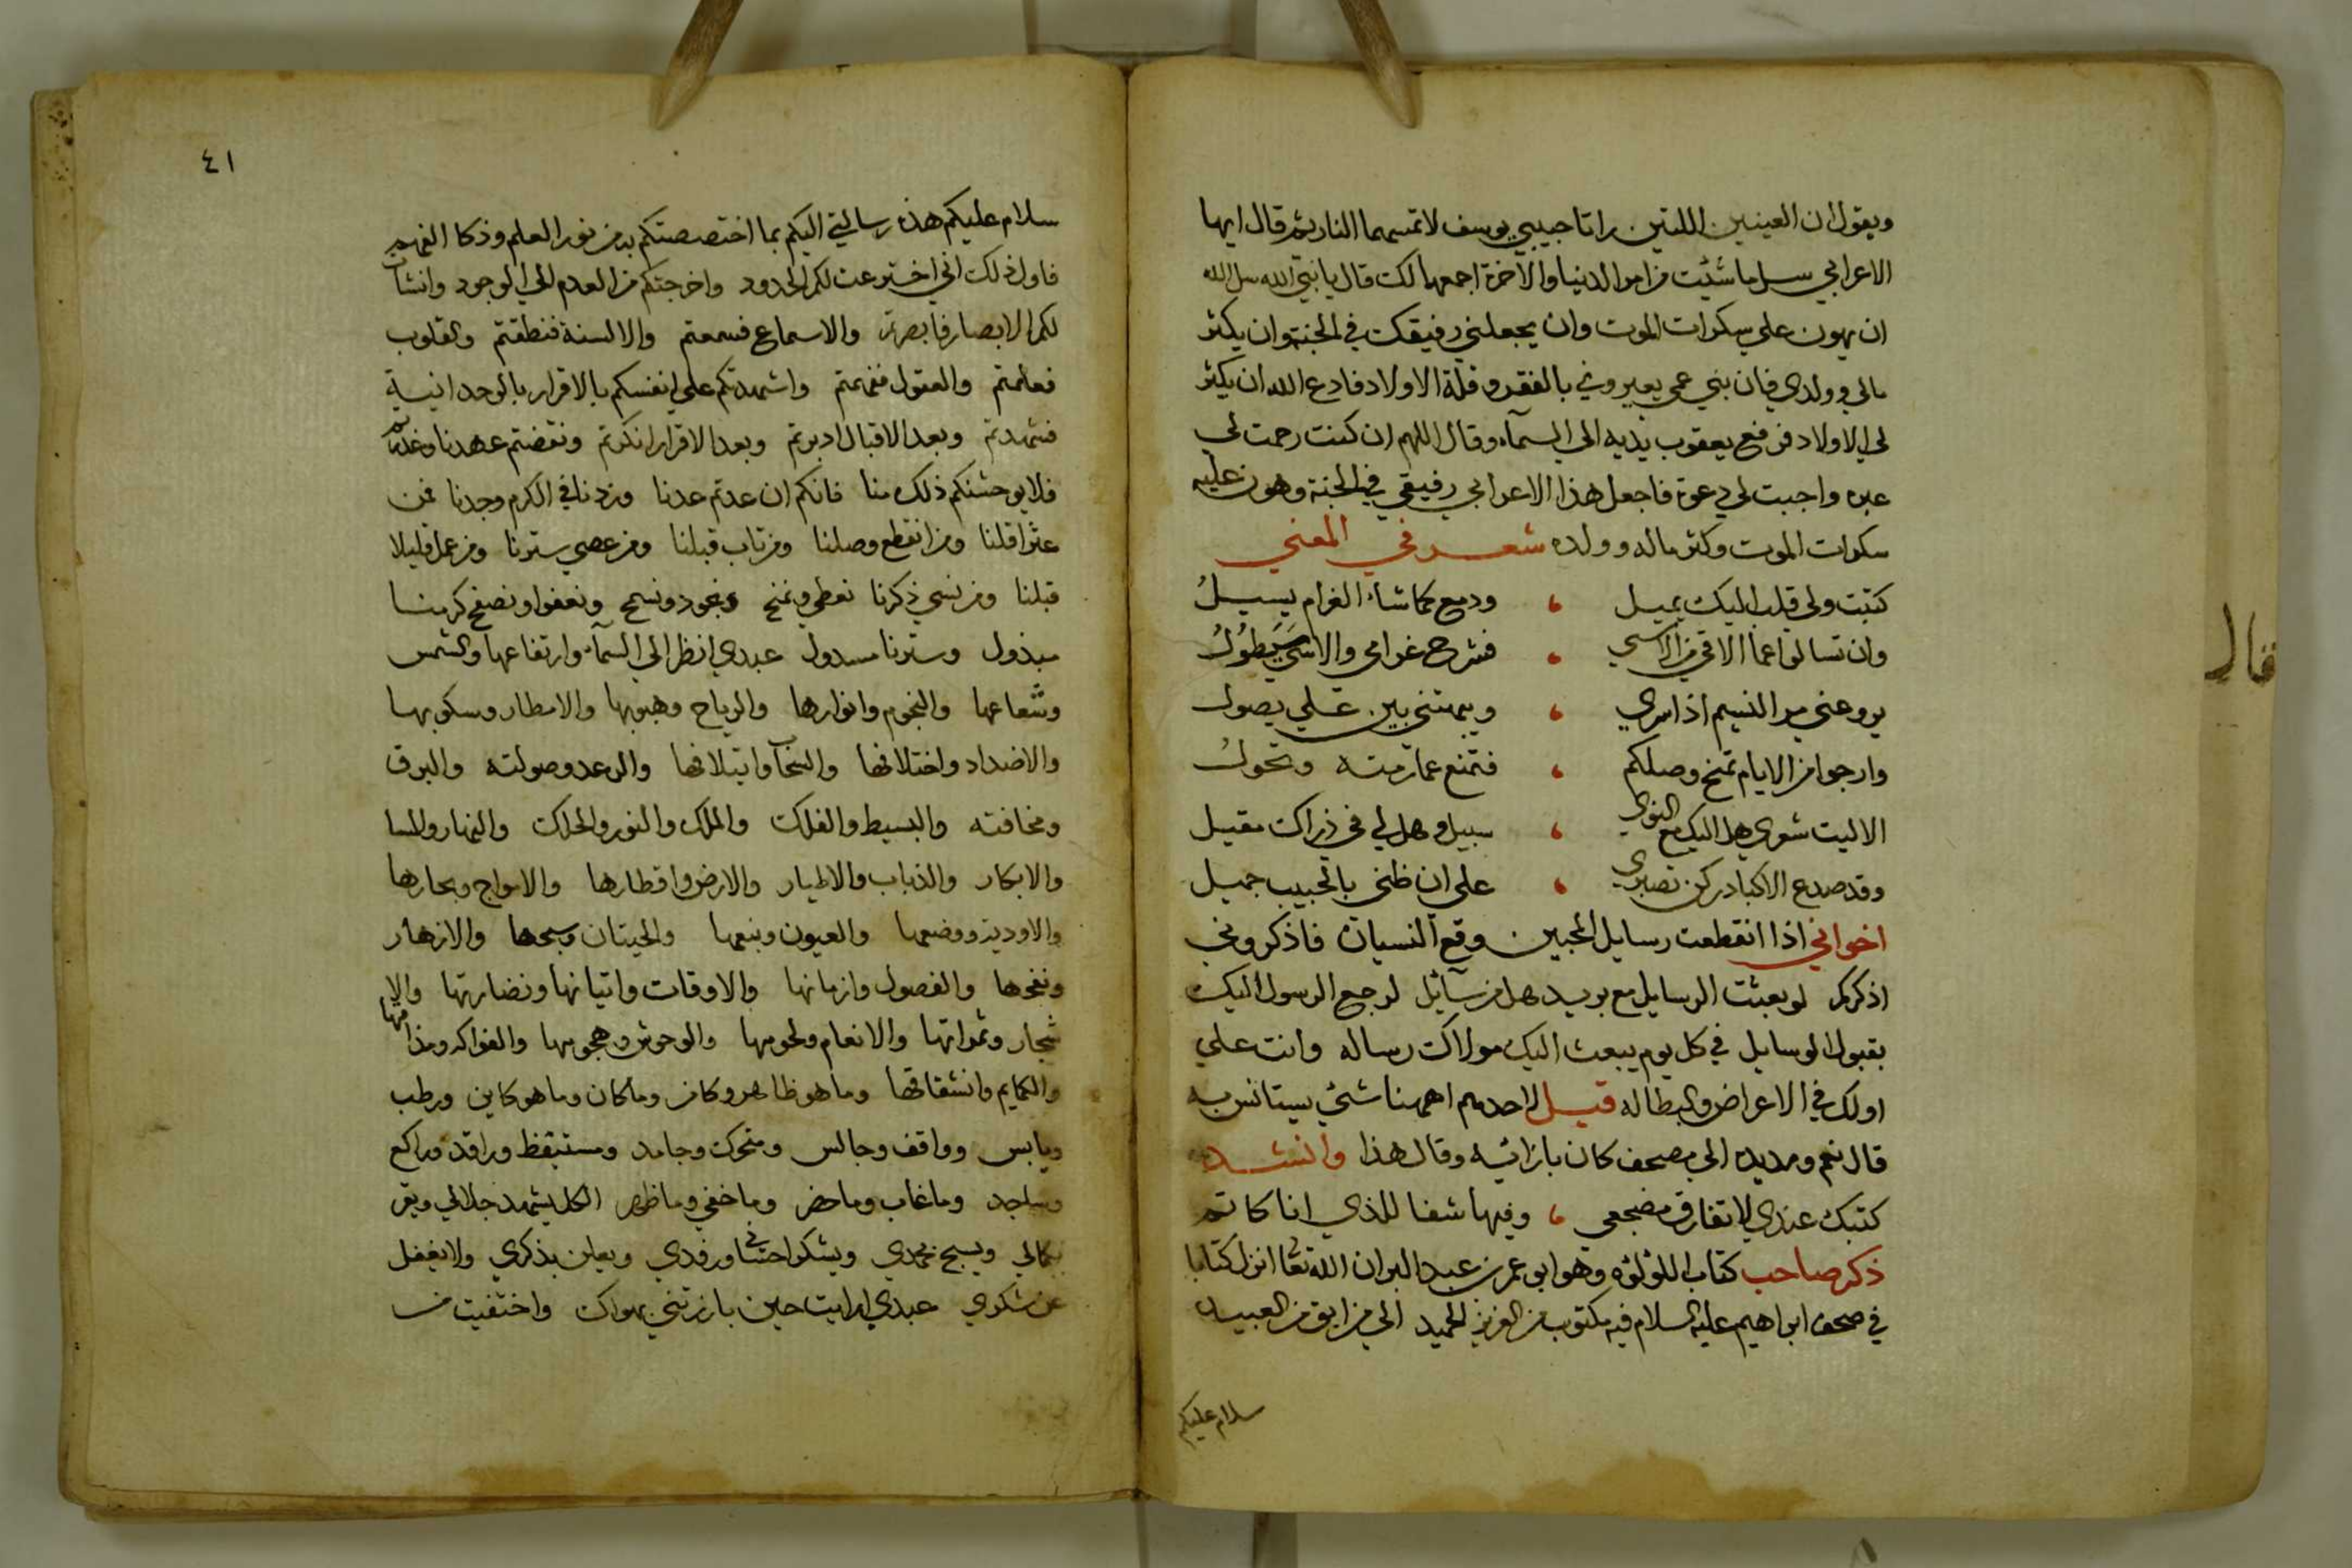 ويقول ان العينين اللتين راتا حبيبي يوسف لا تمسهما النار ثم قال ايها
الاعرابي سل ما شئت من امر الدنيا والآخرة اجمعها لك قال يا نبي الله سل الله
ان يهون علي سكرات الموت وان يجعلني رفيقك في الجنة وان يكثر
مالي وولدي فان بني عمي يعيروني بالفقر وقلة الاولاد فادع الله ان يكثر
لي الاولاد فرفع يعقوب يديه الي السمآء وقال اللهم ان كنت رحمت لي
عبره واجبت لي دعوة فاجعل هذا الاعرابي رفيقي في الجنة وهون عليه
سكرات الموت وكثر ماله وولده شعر في المعني
كتبت ولي قلب اليك يميل ، ودمع كما شاء الغرام يسيل
وان تسالوا عما الاقي من الاسي ، فشرح غرامي والاسي سيطول
يروعني مر النسيم اذا سري ، ويبهتني بين علي يصول
وارجوا من الايام تمنح وصلكم ، فتمنع عما رمته وتحول
الا ليت شعري هل اليك مع النوي ، سبيل وهل لي في ذراك مقيل
وقد صدع الاكباد ركن تصبري ، علي ان ظني بالحبيب جميل
اخواني اذا انقطعت رسايل المحبين وقع النسيان فاذكروني
اذكركم لو بعثت الرسايل مع بريد هل من سآئل لرجع الرسول اليك
بقبول الوسايل في كل يوم يبعث اليك مولاك رساله وانت علي
اولك في الاعراض والبطاله قيل لاحدهم اههنا شئ يستانس به
قال نعم ومد يده الي مصحف كان بازائه وقال هذا وانشد
كتبك عندي لا تفارق مضجعي ، وفيها شفا للذي انا كاتم
ذكر صاحب كتاب اللؤلؤه وهو ابو عمر بن عبد البر ان الله تعا انزل كتابا
في صحف ابراهيم عليه السلام فيه مكتوب من العزيز الحميد الي من ابق من العبيد
سلام عليكم
٤١
سلام عليكم هذه رسالتي اليكم بما اختصصتكم به من نور العلم وذكا الفهم
فاول ذلك اني اخترعت لكم الحدود واخرجتكم من العدم الي الوجود وانشات
لكم الابصار فابصرتم والاسماع فسمعتم والالسنة فنطقتم والقلوب
فعلمتم والعقول ففهمتم واشهدتكم علي انفسكم بالاقرار بالوحدانية
فشهدتم وبعد الاقبال ادبرتم وبعد الاقرار انكرتم ونقضتم عهدنا وغدرتم
فلا يوحشنكم ذلك منا فانكم ان عدتم عدنا وزدنا في الكرم وجدنا فمن
عثر اقلنا ومن انقطع وصلنا ومن تاب قبلنا ومن عصي سترنا ومن عمل قليلا
قبلنا ومن نسي ذكرنا نعطي ونمنح ونجود ونسمح ونعفوا ونصفح كرمنا
مبذول وسترنا مسدول عبدي انظر الي السمآء وارتفاعها والشمس
وشعاعها والنجوم وانوارها والرياح وهبوبها والامطار وسكوبها
والاضداد واختلافها والسحاب وايتلافها والرعد وصولته والبرق
ومخافته والبسيط والفلك والملك والنور والحلك والنهار والمسا
والابكار والذباب والاطيار والارض واقطارها والامواج وبحارها
والاودية ووضعها والعيون ونبعها والحيتان وسبحها والازهار
ونفحها والفصول وازمانها والاوقات واتيانها ونضارتها والا
شجار وثمراتها والانعام ولحومها والوحوش وهجومها والفواكه ومذاقها
والكمايم وانشقاقها وما هو ظاهر وكامن وما كان وما هو كاين ورطب
ويابس وواقف وجالس ومتحرك وجامد ومستيقظ وراقد وراكع
وساجد وما غاب وما حضر وما خفي وما ظهر الكل يشهد جلالي ويقر
بكمالي ويسبح بحمدي ويشكوا ورفدي ويعلن بذكري ولا يغفل
عن شكري عبدي ارايت حين بارزتني بهواك واختفيت من
فقال